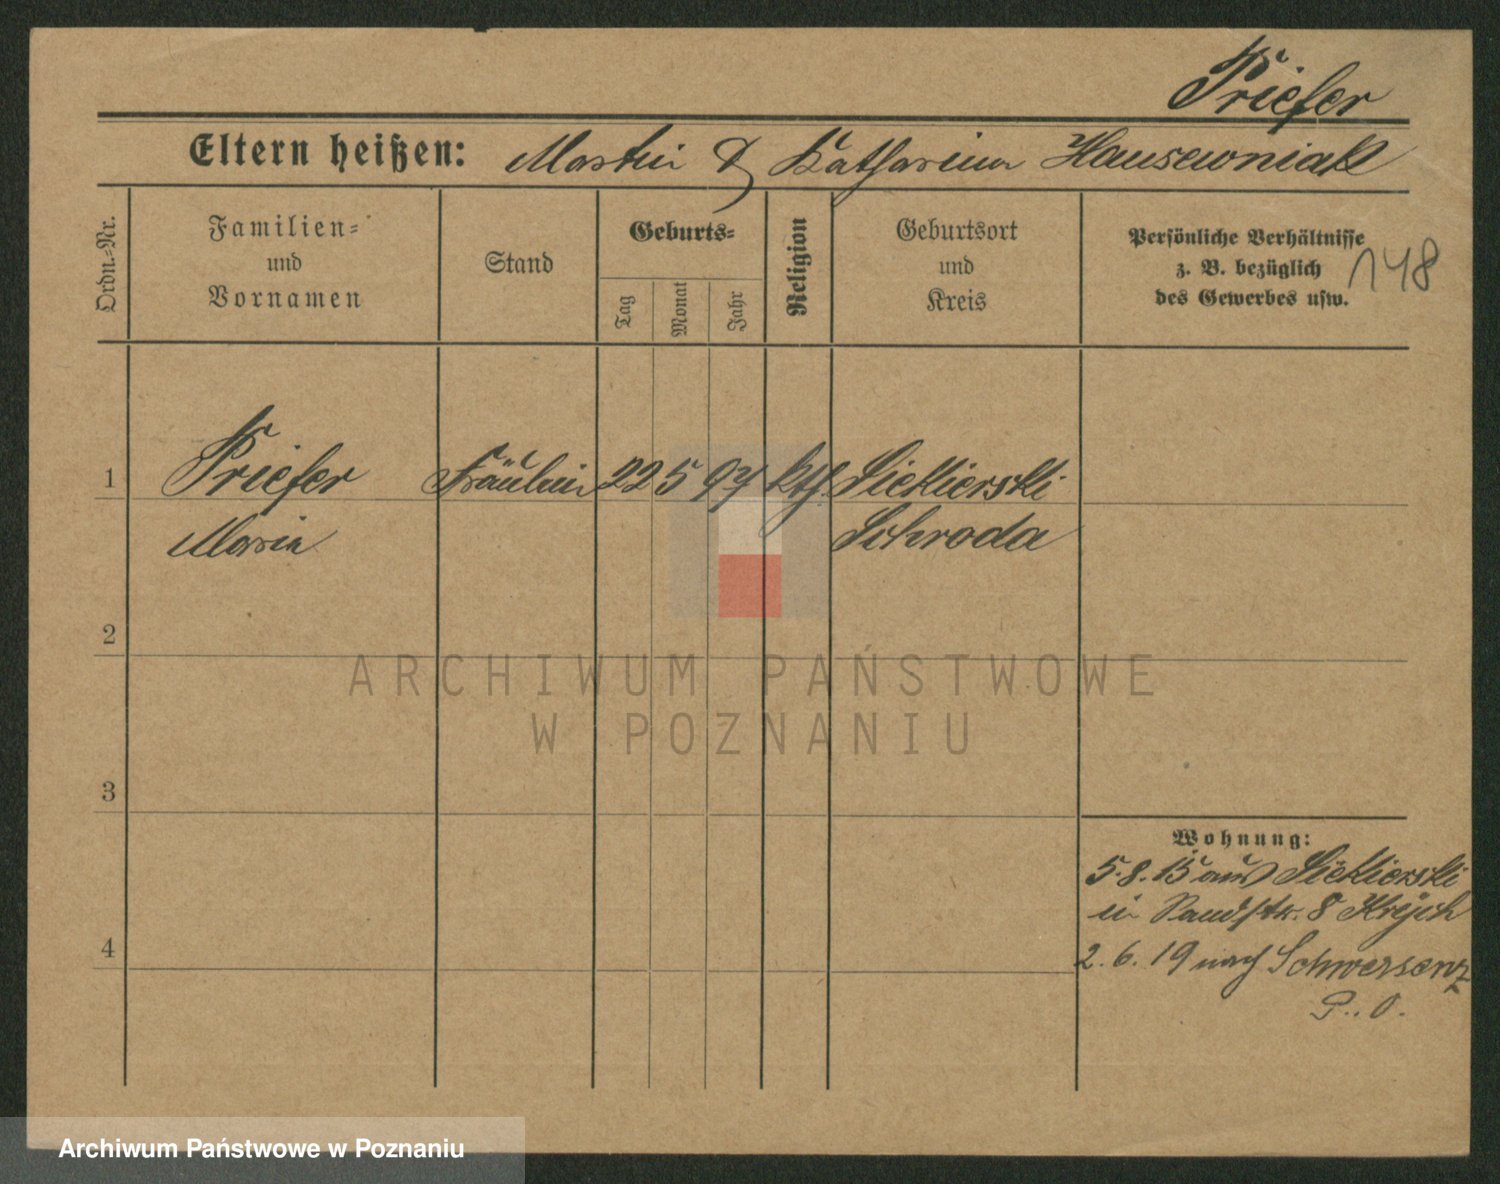 Priefer
Eltern heißen: Martin & Katharina Hausewniak
Ordn.-Nr.
Familien-
und
Vornamen
Stand
Geburts-
Tag
Monat
Jahr
Religion
Geburtsort
und
Kreis
Persönliche Verhältnisse
z. B. bezüglich
des Gewerbes usw.
148
1 Priefer Fräulein 22 5 97 kth. Siekierski
Maria Schroda
2
ARCHIWUM PAŃSTWOWE
W POZNANIU
3
Wohnung:
5.8.15 aus Siekierski
in 8
4
2.6.19 nach Schwersenz
P..O.
Archiwum Państwowe w Poznaniu